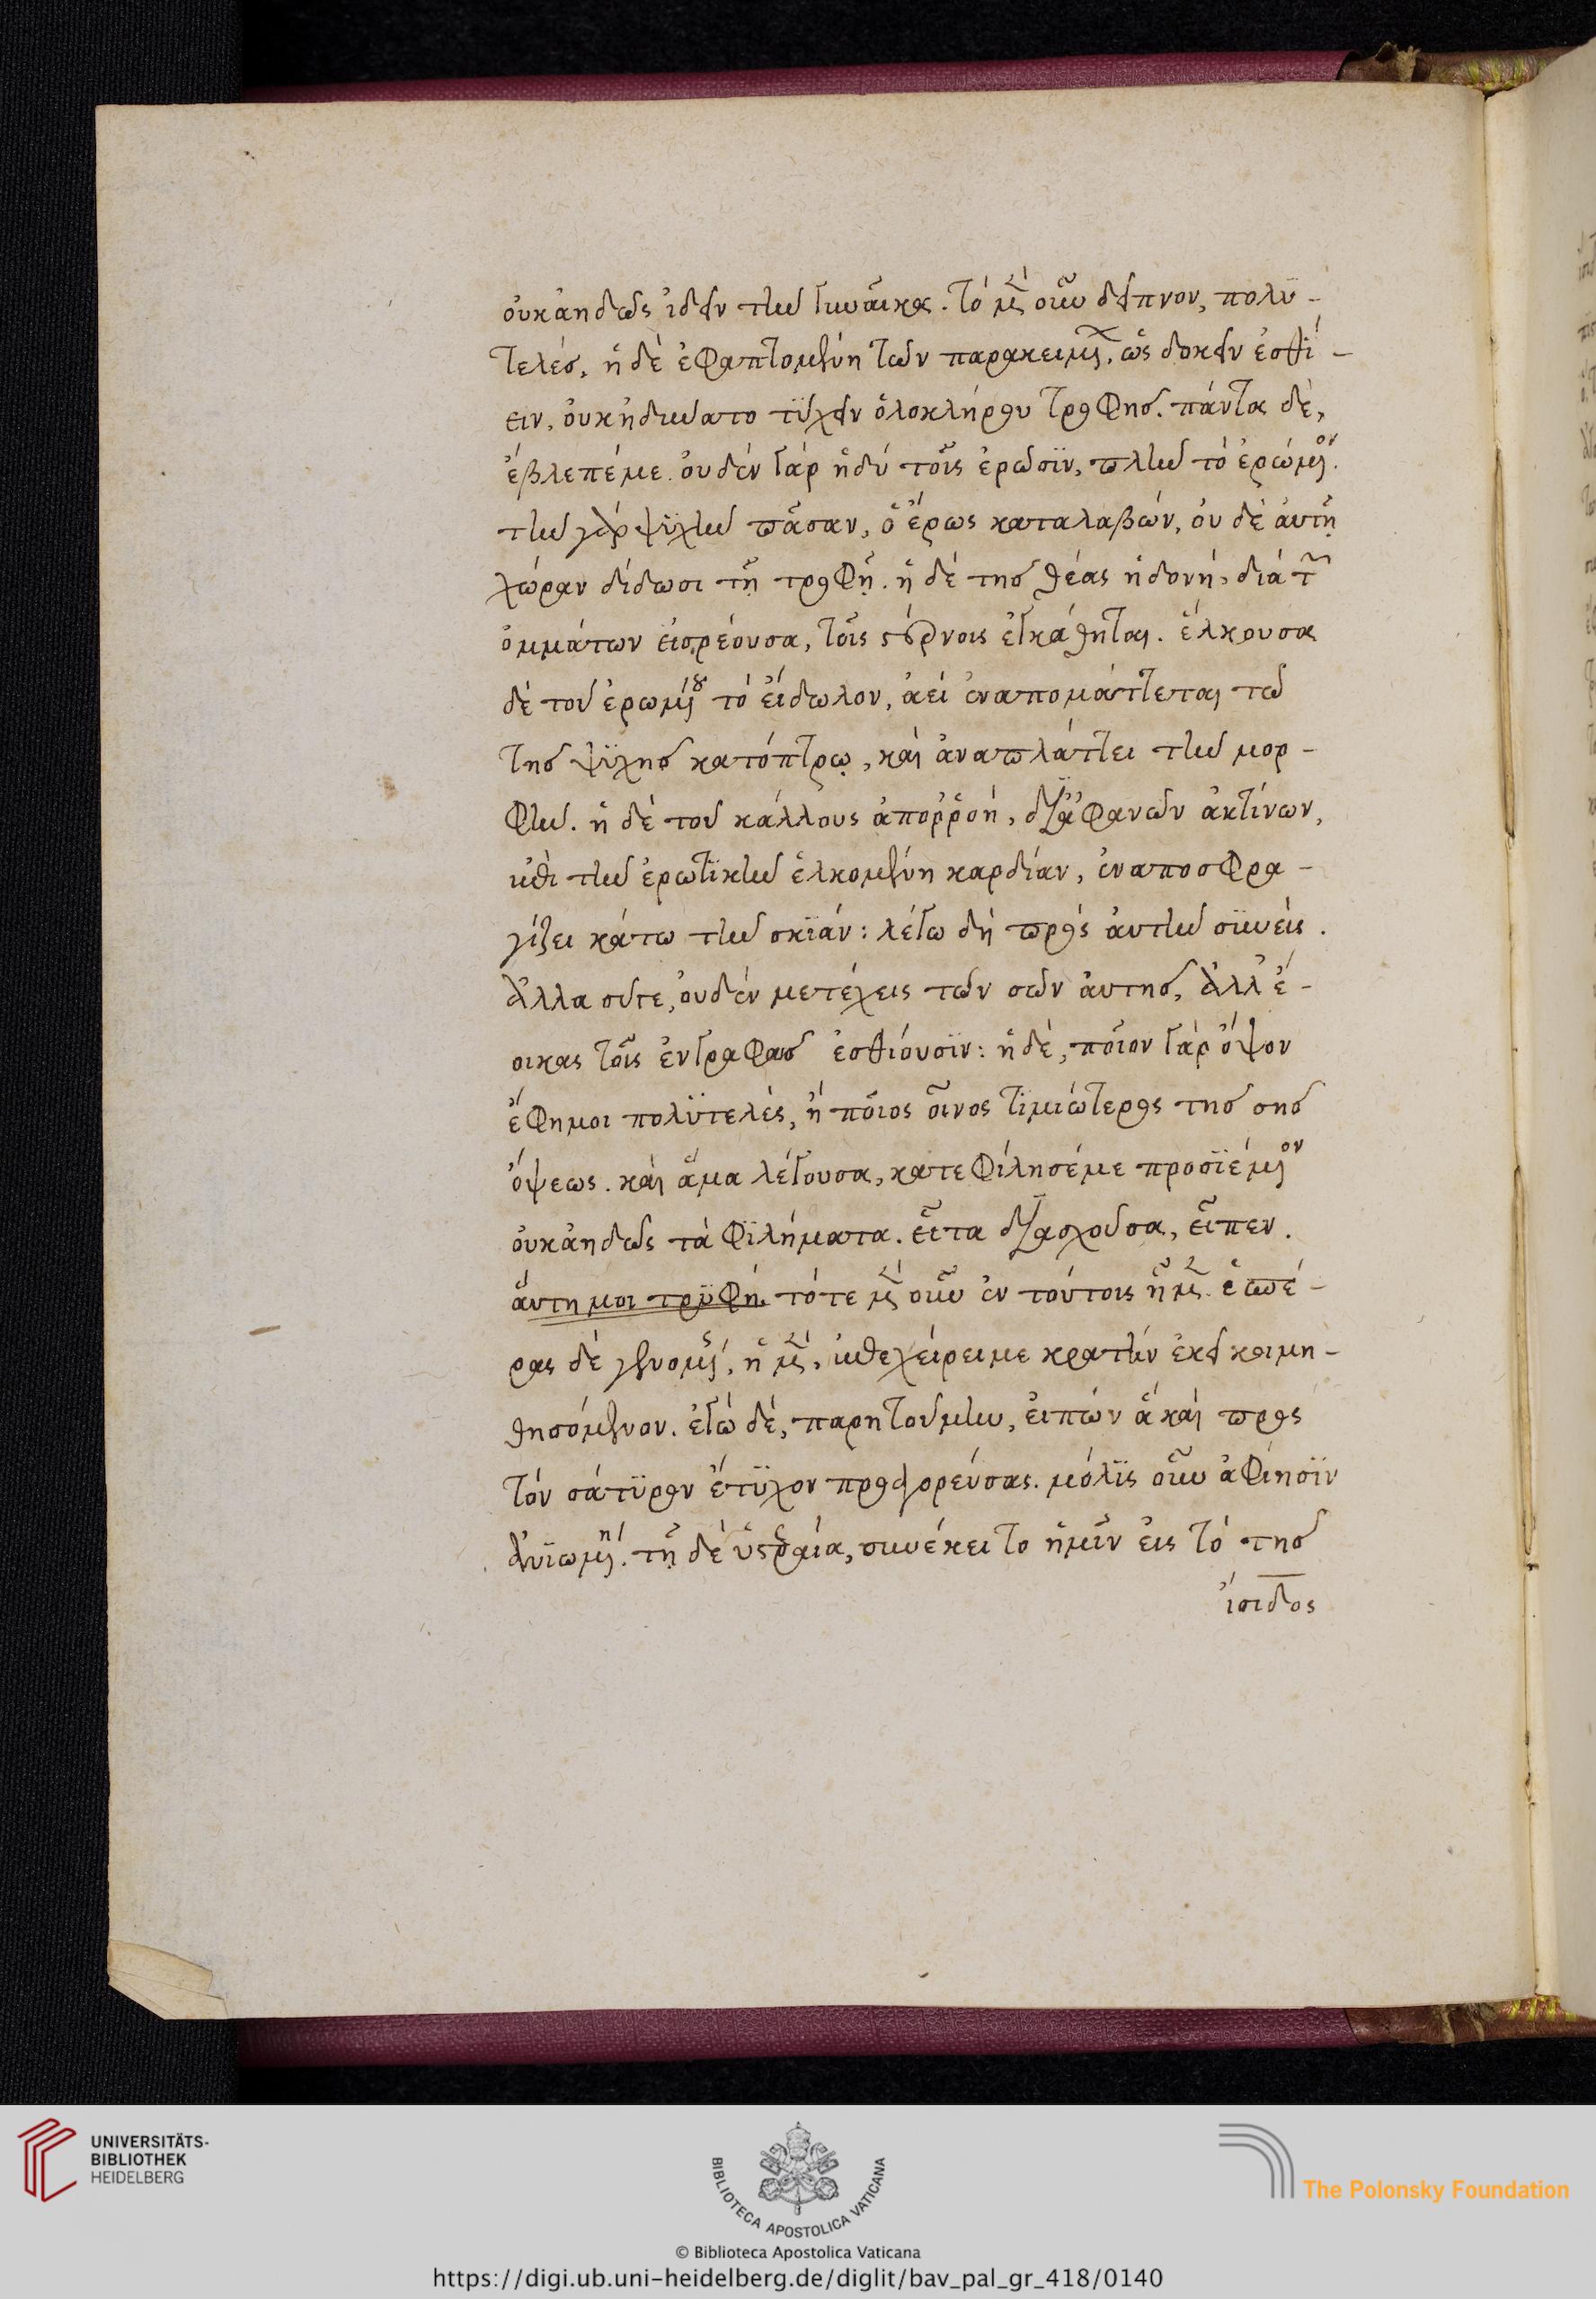 οὐκ ἀηδῶς ἰδεῖν τὴν γυναῖκα. τὸ μὲν οὖν δεῖπνον, πολυ-
τελές, ἡ δὲ ἐφαπτομένη τῶν παρακειμένων, ὡς δοκεῖν ἐσθί-
ειν, οὐκ ἠδύνατο τυχεῖν ὁλοκλήρου τροφῆς. πάντα δὲ,
ἔβλεπέ με. οὐδὲν γὰρ ἡδὺ τοῖς ἐρῶσιν, πλὴν τὸ ἐρώμενον.
τὴν γὰρ ψυχὴν πᾶσαν, ὁ ἔρως καταλαβών, οὐδὲ αὐτῇ
χώραν δίδωσι τῇ τροφῇ. ἡ δὲ τῆς θέας ἡδονή, διὰ τῶν
ὀμμάτων εἰσρέουσα, τοῖς στέρνοις ἐγκάθηται. ἕλκουσα
δὲ τοῦ ἐρωμένου τὸ εἴδωλον, ἀεὶ ἐναπομάττεται τῷ
τῆς ψυχῆς κατόπτρῳ, καὶ ἀναπλάττει τὴν μορ-
φήν. ἡ δὲ τοῦ κάλλους ἀπορροή, δι' ἀφανῶν ἀκτίνων,
ἐπὶ τὴν ἐρωτικὴν ἑλκομένη καρδίαν, ἐναποσφρα-
γίζει κάτω τὴν σκιάν: λέγω δὴ πρὸς αὐτὴν συνείς.
ἀλλὰ σύ γε, οὐδὲν μετέχεις τῶν σῶν αὐτῆς, ἀλλ' ἔ-
οικας τοῖς ἐν γραφαῖς ἐσθίουσιν: ἡ δέ, ποῖον γὰρ ὄψον
ἔφη μοι πολυτελές, ἢ ποῖος οἶνος τιμιώτερος τῆς σῆς
ὄψεως. καὶ ἅμα λέγουσα, κατεφίλησέ με προσιέμενον
οὐκ ἀηδῶς τὰ φιλήματα. εἶτα διασχοῦσα, εἶπεν.
αὕτη μοι τρυφή. τότε μὲν οὖν ἐν τούτοις ἦμεν. ἑσπέ-
ρας δὲ γενομένης, ἡ μὲν, ἐπεχείρει με κρατεῖν ἐκεῖ κοιμη-
θησόμενον. ἐγὼ δὲ, παρῃτούμην, εἰπὼν ἃ καὶ πρὸς
τὸν σάτυρον ἔτυχον προαγορεύσας. μόλις οὖν ἀφίησιν
ἀνιωμένη. τῇ δὲ ὑστεραίᾳ, συνέκειτο ἡμῖν εἰς τὸ τῆς
ἴσιδος
UNIVERSITÄTS-
BIBLIOTHEK
HEIDELBERG
BIBLIOTECA APOSTOLICA VATICANA
The Polonsky Foundation
© Biblioteca Apostolica Vaticana
https://digi.ub.uni-heidelberg.de/diglit/bav_pal_gr_418/0140